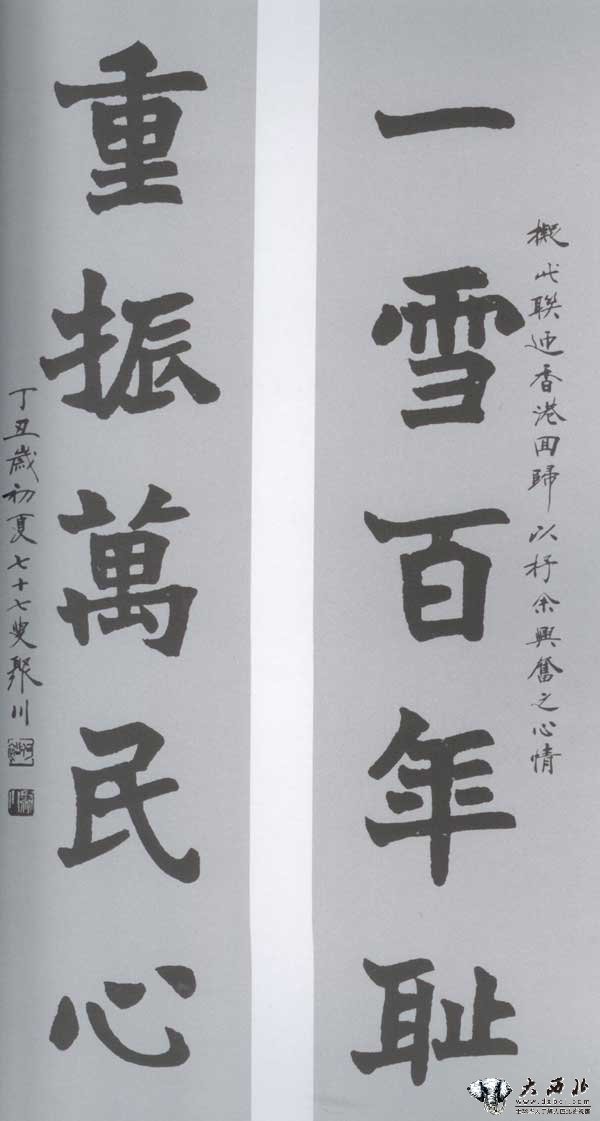 一雪百年耻
擬此聯迎香港回歸以抒余興奮之心情
重振萬民心
丁丑歲初夏七十七叟聚川
大西北